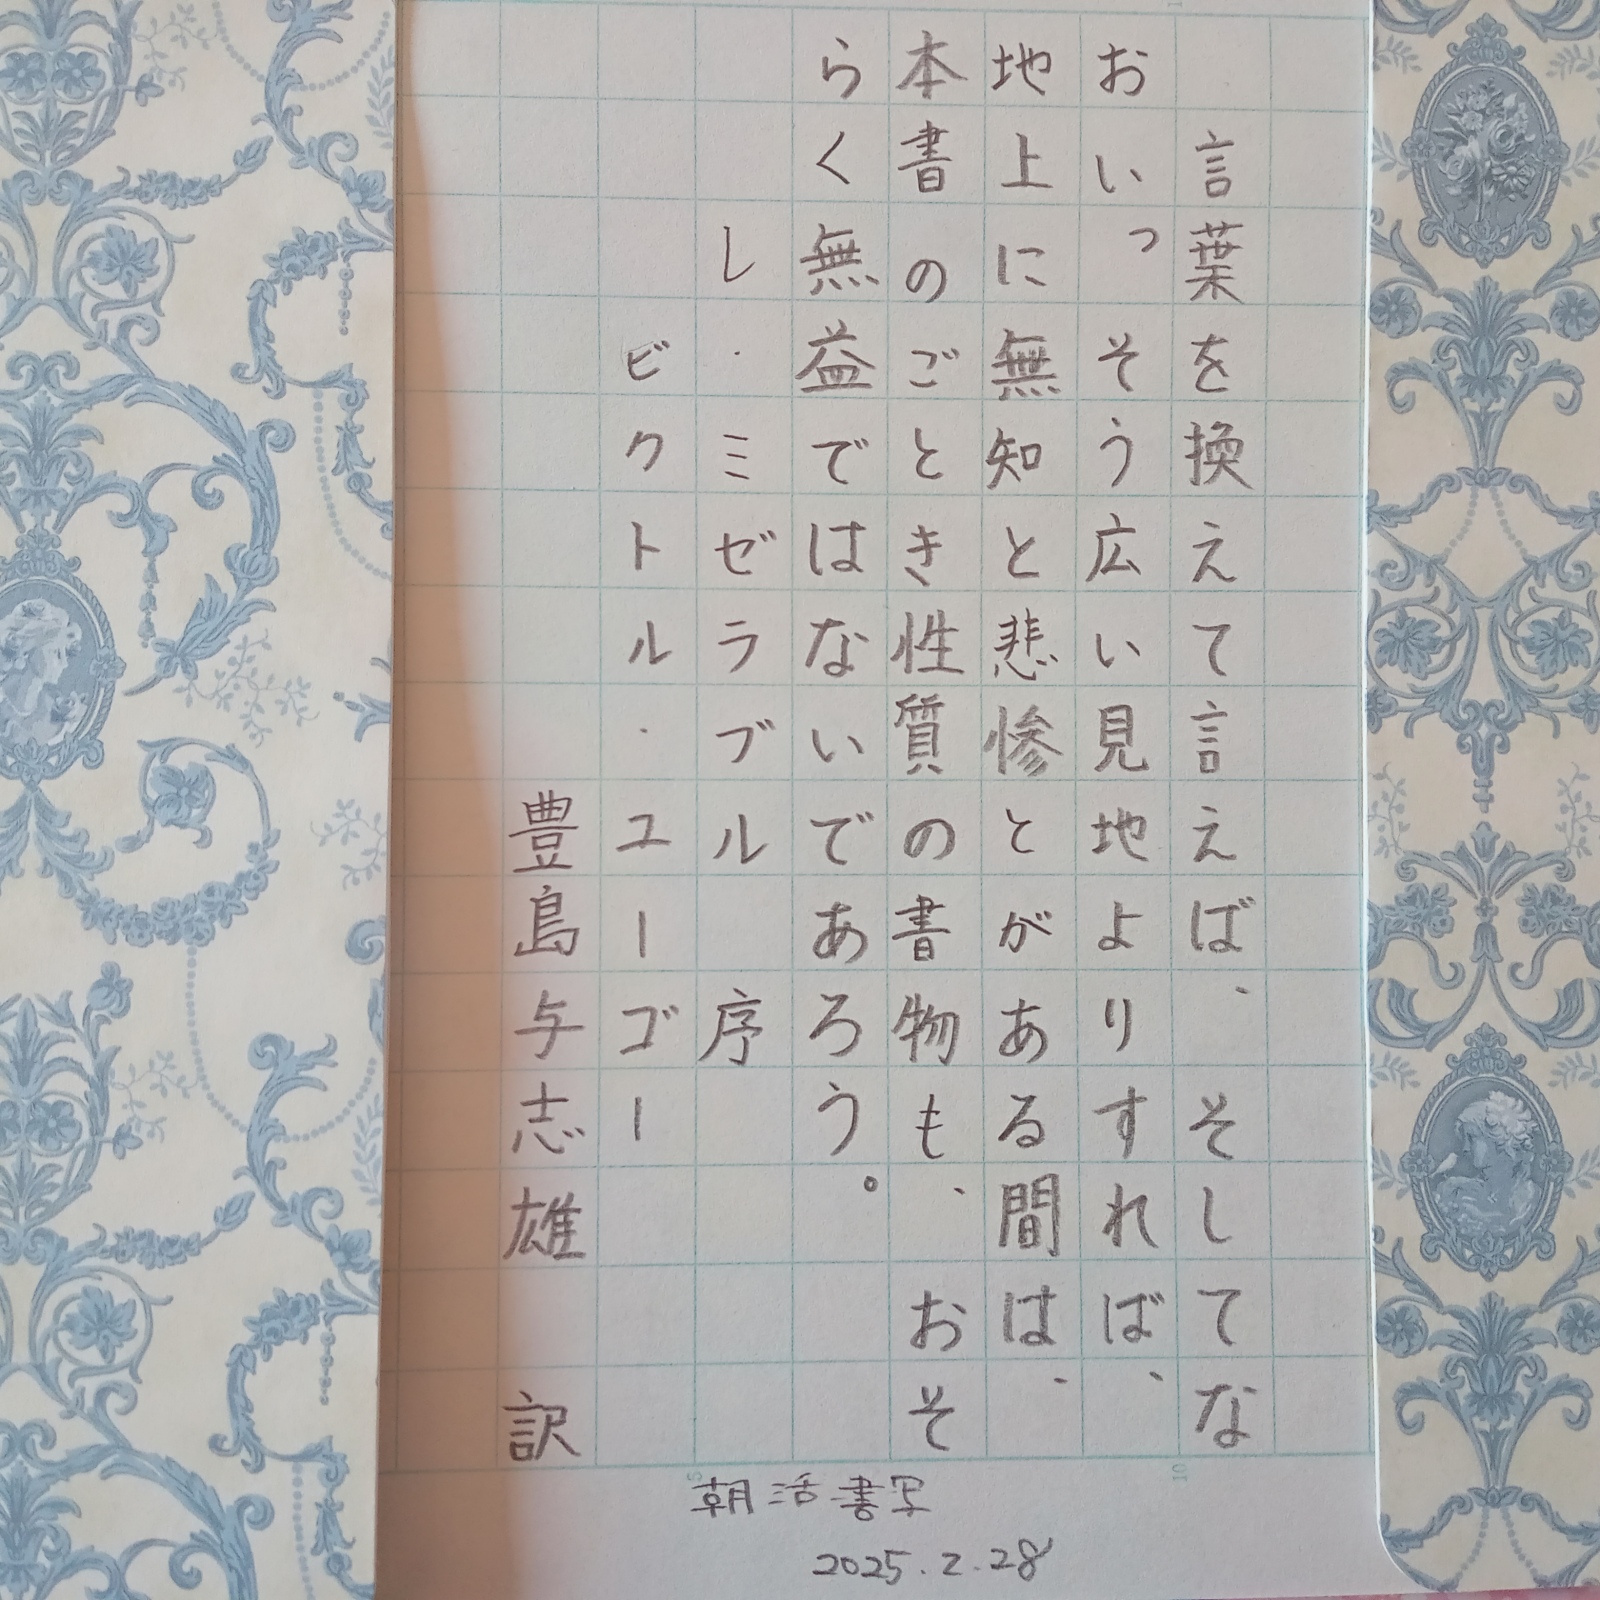 言葉を換えて言えば、そしてな
おいっそう広い見地よりすれば、
地上に無知と悲惨とがある間は、
本書のごとき性質の書物も、おそ
らく無益ではないであろう。
レ・ミゼラブル 序
ビクトル・ユーゴー
豊島与志雄 訳
朝活書写
2025.2.28